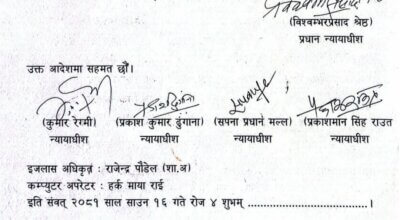 (विश्वम्भरप्रसाद श्रेष्ठ)
प्रधान न्यायाधीश
उक्त आदेशमा सहमत छौं।
(कुमार रेग्मी) (प्रकाश कुमार ढुंगाना) (सपना प्रधान मल्ल) (प्रकाशमान सिंह राउत)
न्यायाधीश न्यायाधीश न्यायाधीश न्यायाधीश
इजलास अधिकृतः राजेन्द्र पौडेल (शा.अ)
कम्प्युटर अपरेटर : हर्क माया राई
इति संवत् २०८१ साल साउन १६ गते रोज ४ शुभम् ..........................।